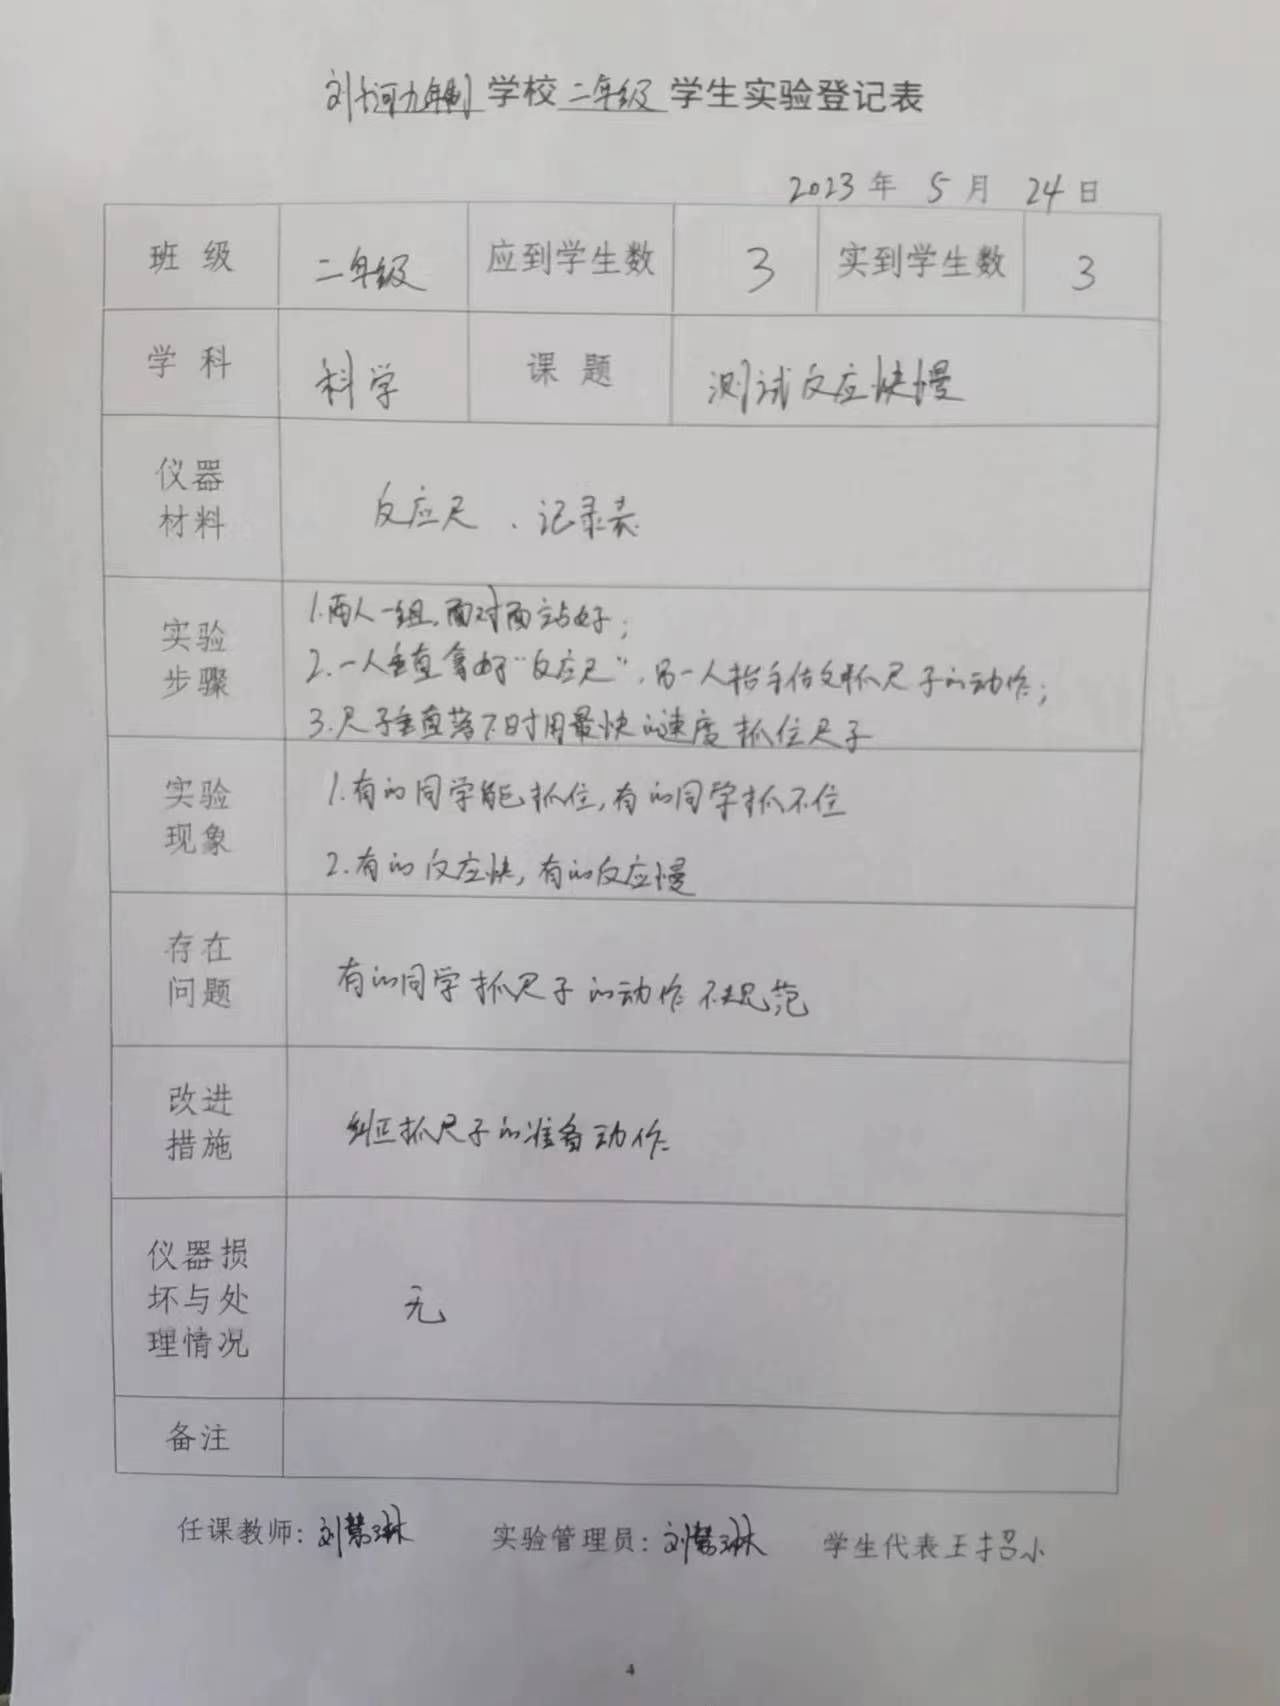 刘河九年制学校二年级学生实验登记表
2023年 5月 24日
班级 二年级 应到学生数 3 实到学生数 3
学科 科学 课题 测试反应快慢
仪器
材料
反应尺、记录表
实验
步骤
1.两人一组,面对面站好;
2.一人垂直拿好“反应尺”,另一人抬手做好抓尺子的动作;
3.尺子垂直落下时用最快的速度抓住尺子
实验
现象
1.有的同学能抓住,有的同学抓不住
2.有的反应快,有的反应慢
存在
问题
有的同学抓尺子的动作不规范
改进
措施
纠正抓尺子的准备动作
仪器损
坏与处
理情况
无
备注
任课教师:刘慧琳 实验管理员:刘慧琳 学生代表王招小
4